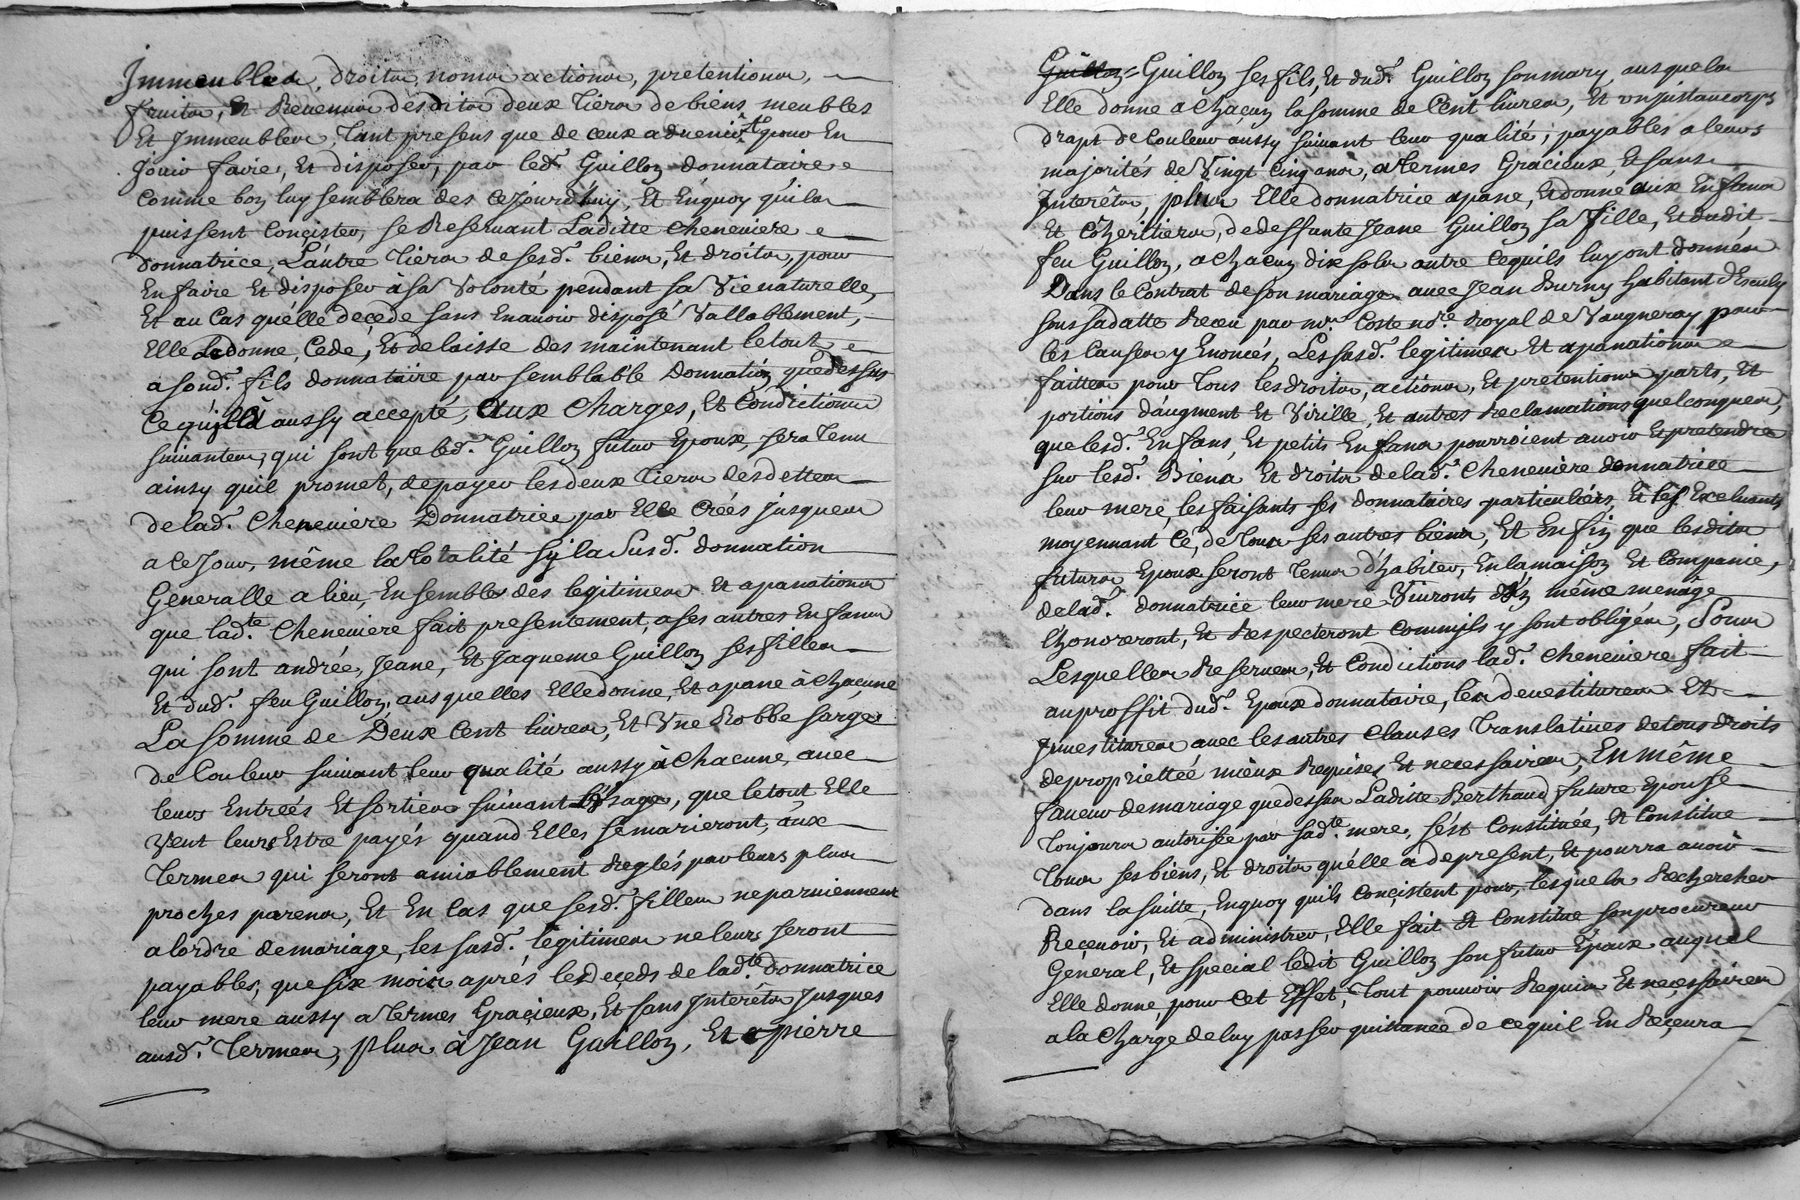 Immeubles, droits, noms actions, pretentions,
fruits, Et Revenus desdits deux tiers de biens meubles
Et Immeubles, tant presens que de ceux advenir pour En
Jouir faire, Et disposer, par led.t Guilloz donnataire
Comme boz luy semblera des cejourdhuy, Et Enquoy quils
puissent Conçister, se Reservant Laditte Cheneviere
donnatrice, Lautre tiers de sesd.t biens, Et droits, pour
En faire Et disposer à sa Volonté pendant sa Vie naturelle,
Et au Cas quélle décede sans Enavoir disposé Vallablement,
Elle Ledonne, Cede, Et delaisse des maintenant letout
a sond.t fils donnataire par semblable Donnatioz quedessus
Cequila aussy accepté, aux Charges, Et Condictions
suivantes, qui sont que led.t Guilloz futur Epoux, sera tenu
ainsy quil promet, depayer lesdeux tiers desdettes
delad.t Cheneviere Donnatrice par Elle Créés jusques
a Cejour, même la totalité sy la Susd.t donnation
Generalle a lieu, Ensembles des legitimes Et apanations
que lad.te Cheneviere fait presentement, ases autres Enfans
qui sont andrée, Jeane, Et Jaqueme Guilloz ses filles
Et dud.t feu Guilloz, ausquelles Elledonne, Et apane à chaçune
La somme de Deux Cent livres, Et Vne Robbe sarge
de Couleur suivant leur qualité aussy à Chacune, avec
leurs Entreés Et sorties suivant Lusage, que letout Elle
Veut leurs Estre payés quand Elles semarieront, aux
termes qui seront amiablement Reglés par leurs plus
proches parens, Et En Cas que sesd.t filles neparviennent
alordre demariage, les susd.t legitimes neleurs seront
payables, que six mois aprés ledeçeds de lad.te donnatrice
leur mere aussy a termes Graçieux, Et sans Interêts Jusques
ausd.t termes, plus à Jean Guilloz, Et a pierre
Guilloz = Guilloz ses fils, Et dud.t Guilloz son mary, ausquels
Elle donne a Chaçun la somme de Cent livres, Et vnjustaucorps
drapt de Couleur aussy suivant leur qualité; payables a leurs
majorités de Vingt Cinq ans, a termes Gracieux, Et sans
Interêts, plus Elle donnatrice apane, Et donne aux Enfans
Et Cohéritiers, dedeffunte Jeane Guilloz sa fille, Et dudit
feu Guilloz, a chaçun dix sols outre Cequils luy ont donnés
Dans le Contrat de son mariage avec Jean Burny habitant d'Esculy
sous sadatte Receu par m.r Coste no.re Royal de Vaugneray pour
les Causes y Enoncés, Les susd.t legitimes Et apanations
faittes pour tous lesdroits, actions, Et pretentions parts, Et
portions d'augment Et Virille, Et autres Reclamations quelconques,
que lesd.t Enfans, Et petits Enfans pourroient avoir Et pretendre
sur lesd.t Biens Et droits delad.t Cheneviere donnatrice
leur mere, les faisants ses donnataires particuliérs Et les Excluants
moyennant Ce, de tous ses autres biens, Et Enfin que lesdits
futurs Epoux seront tenus d'habiter, En la maisoz Et Compagnie,
delad.t donnatrice leur mere Vivront même menage
L'honoreront, Et Respecteront Commils y sont obligés, Sous
Lesquelles Reserves, Et Condictions lad.t Cheneviere fait
auproffit dud.t Epoux donnataire, les devestitures Et
Jnvestitures avec les autres Clauses translatives detous droits
deproprietteé mieux Requises Et necessaires, En même
faveur demariage quedessus Laditte Berthaud future Epouse
toujours autorisée par sad.te mere, sést Constituée, Et Constitue
tous ses biens, Et droits quélle a depresent, Et pourra avoir
dans la suitte, Enquoy quils conçistent pour, lesquels Rechercher
Reçevoir, Et administrer, Elle fait Et Constitue son procureur
General, Et special ledit Guilloz son futur Epoux auquel
Elle donne, pour Cet Effet, tout pouvoir Requis Et neçessaires
a la Charge deluy passer quittance de cequil En Reçevra